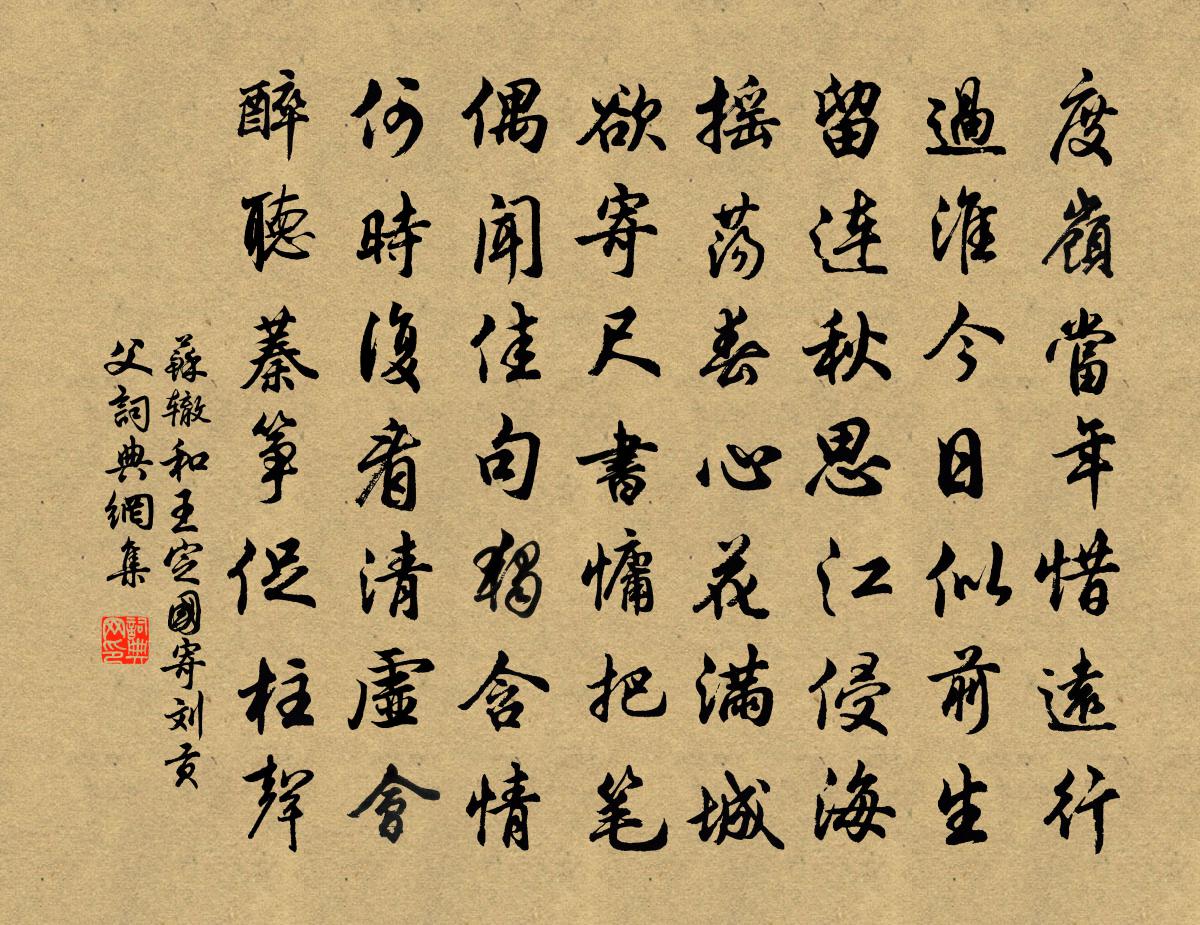 度嶺當年惜遠行
過淮今日似前生
留連秋思江侵海
搖蕩春心花滿城
欲寄尺書慵把笔
偶聞佳句獨含情
何時復看清虛會
醉聽蓁筝促柱聲
蘇辙和王定國寄刘贡
父詞典網集
詞典
网印